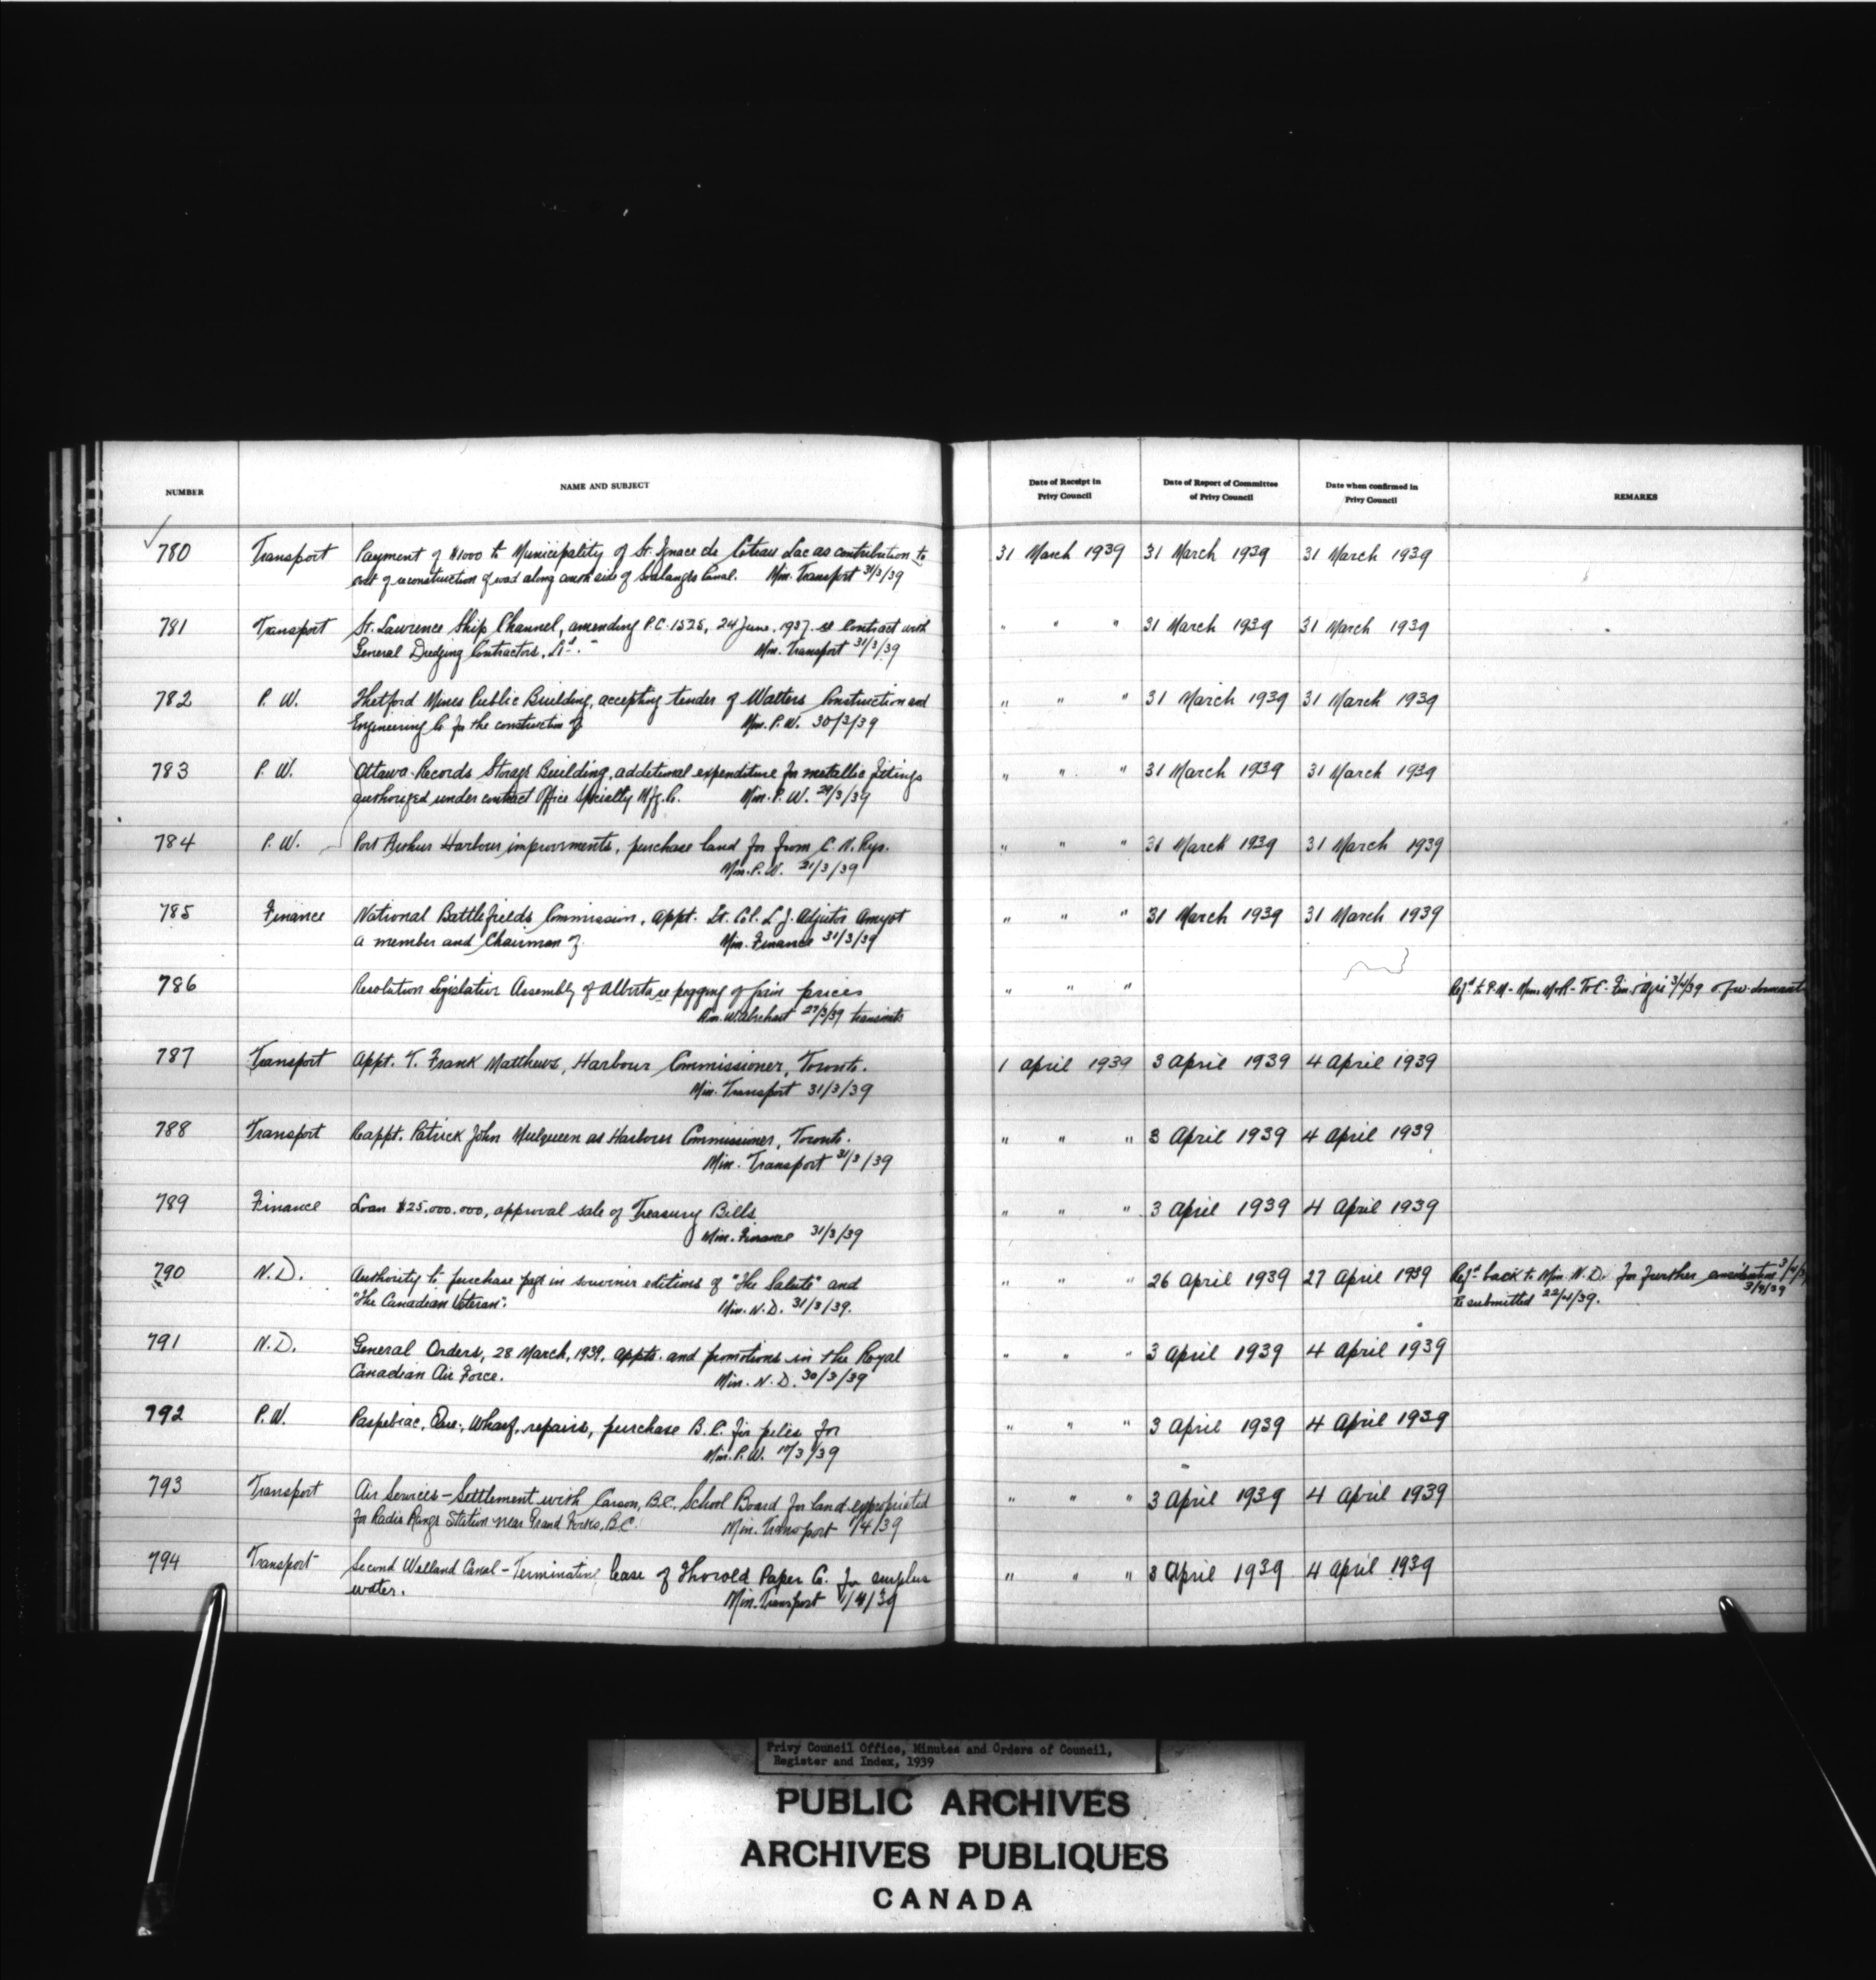 NUMBER
NAME AND SUBJECT
Date of Receipt in
Privy Council
Date of Report of Committee
of Privy Council
Date when confirmed in
Privy Council
REMARKS
780 Transport Payment of $1000 to Municipality of St. Ignace de Coteau Lac as contribution to 31 March 1939 31 March 1939 31 March 1939
cost of reconstruction of road along north side of Soulanges Canal. Min. Transport 31/3/39
781 Transport St. Lawrence Ship Channel, amending P.C. 1525, 24 June, 1937. re contract with " " " 31 March 1939 31 March 1939
General Dredging Contractors, Ltd. Min. Transport 31/3/39
782 P. W. Thetford Mines Public Building, accepting tender of Walters Construction and " " " 31 March 1939 31 March 1939
Engineering Co for the construction of Min. P. W. 30/3/39
783 P. W. Ottawa Records Storage Building, additional expenditure for metallic fittings " " " 31 March 1939 31 March 1939
authorized under contract Office Specialty Mfg. Co. Min. P. W. 29/3/39
784 P. W. Port Arthur Harbour improvements, purchase land for from C. N. Rys. " " " 31 March 1939 31 March 1939
Min. P. W. 31/3/39
785 Finance National Battlefields Commission, appt. Lt. Col. L. J. Adjutor Amyot " " " 31 March 1939 31 March 1939
a member and Chairman of. Min. Finance 31/3/39
786 Resolution Legislative Assembly of Alberta re pegging of prices " " " Refd to P.M. - T&C - 3/4/39
Hon. W. Aberhart 27/3/39 transmits
787 Transport Appt. T. Frank Matthews, Harbour Commissioner, Toronto. 1 April 1939 3 April 1939 4 April 1939
Min. Transport 31/3/39
788 Transport Reappt. Patrick John Mulqueen as Harbour Commissioner, Toronto. " " " 3 April 1939 4 April 1939
Min. Transport 31/3/39
789 Finance Loan $25.000.000, approval sale of Treasury Bills " " " 3 April 1939 4 April 1939
Min. Finance 31/3/39
790 N. D. Authority to purchase page in souvenir editions of "The Salute" and " " " 26 April 1939 27 April 1939 Refd back to Min. N. D. for further consideration
"The Canadian Veteran". Min. N. D. 31/3/39. Resubmitted 22/4/39.
791 N. D. General Orders, 28 March, 1939, appts. and promotions in the Royal " " " 3 April 1939 4 April 1939
Canadian Air Force. Min. N. D. 30/3/39
792 P. W. Paspebiac, Que., Wharf, repairs, purchase B. C. fir piles for " " " 3 April 1939 4 April 1939
Min. P. W. /3/39
793 Transport Air Services - Settlement with Carson, B.C. School Board for land expropriated " " " 3 April 1939 4 April 1939
for Radio Range Station near Grand Forks, B.C. Min. Transport 1/4/39
794 Transport Second Welland Canal - Terminating lease of Thorold Paper Co. for surplus " " " 3 April 1939 4 April 1939
water. Min. Transport 1/4/39
Privy Council Office, Minutes and Orders of Council,
Register and Index, 1939
PUBLIC ARCHIVES
ARCHIVES PUBLIQUES
CANADA